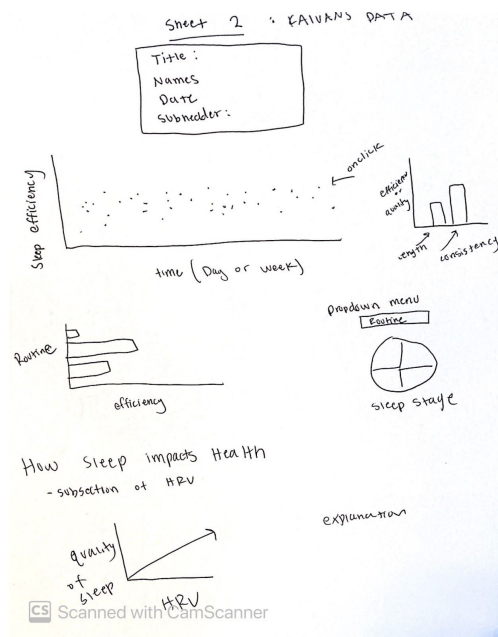 Sheet 2 : KAIVANS DATA
Title :
Names
Date
Subheader :
Sleep efficiency
onclick
time (Day or week)
efficiency
or
quality
length
consistency
Routine
efficiency
Dropdown menu
Routine
sleep stage
How sleep impacts Health
- subsection of HRV
quality
of
sleep
HRV
explanation
CS Scanned with CamScanner